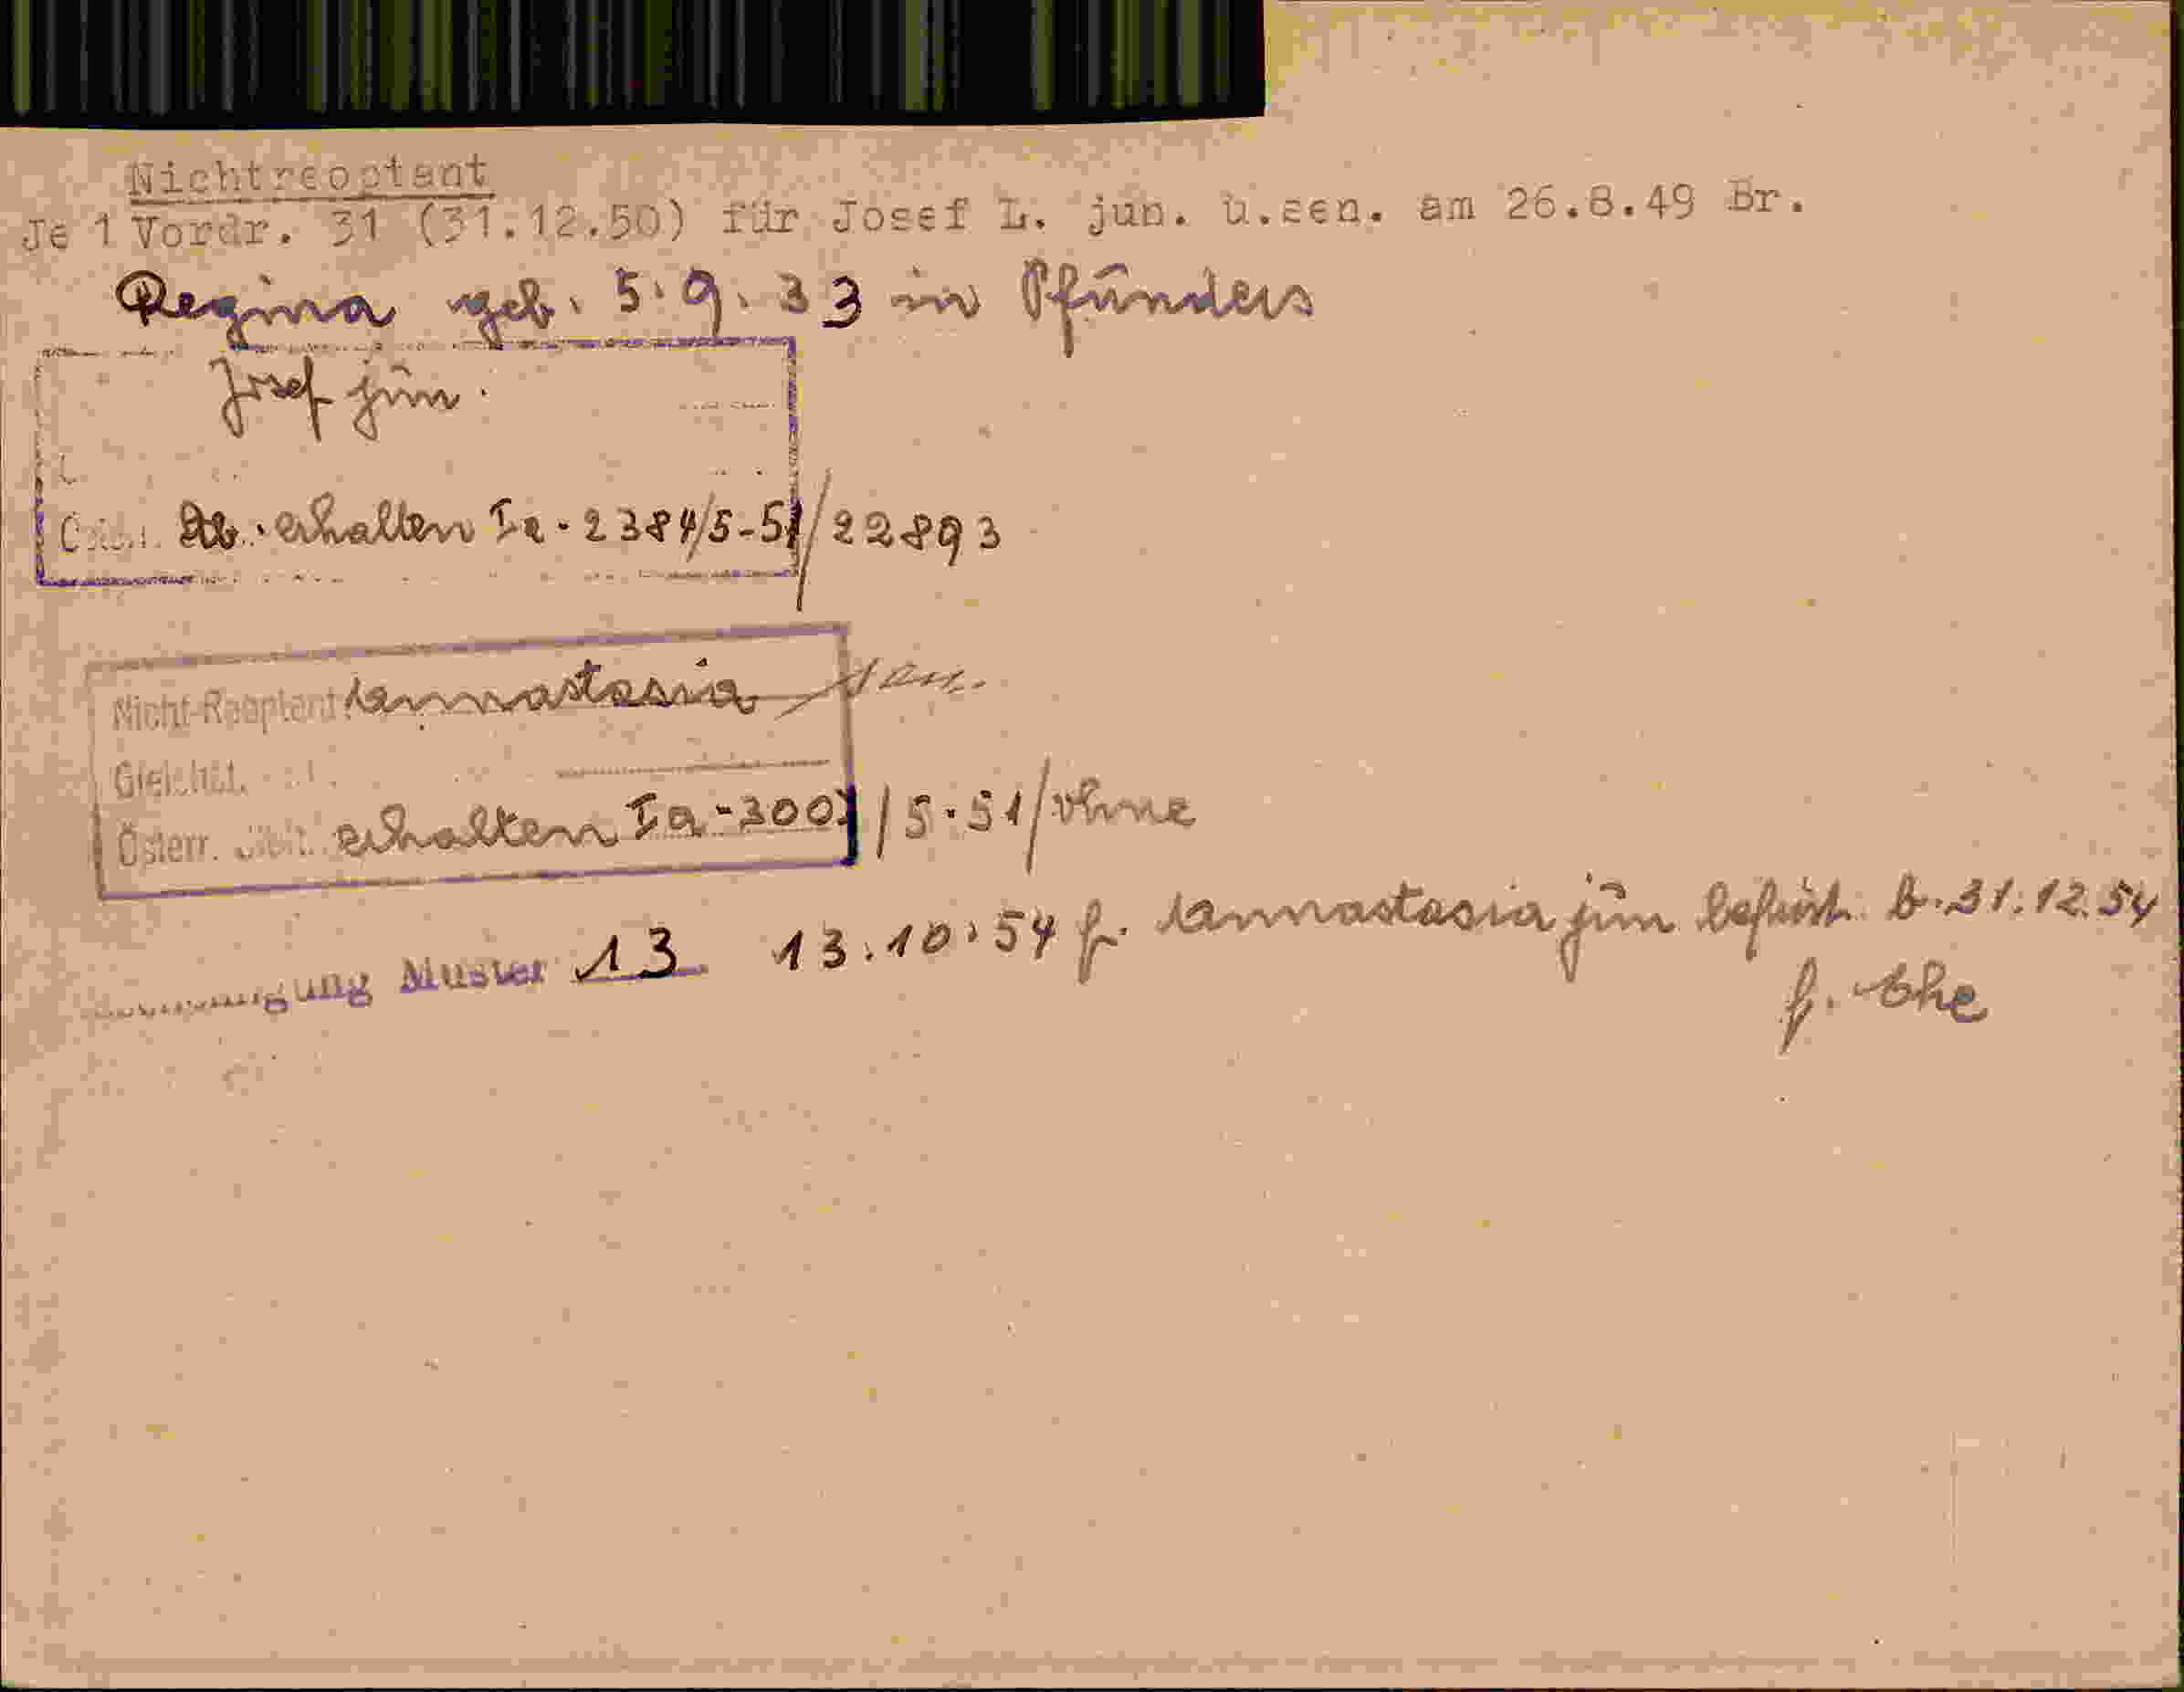 Nichtreoptant
Je 1 Vordr. 31 (31.12.50) für Josef L. jun. u.sen. am 26.8.49 Br.
Regina geb. 5.9.33 in Pfunders
Josef jun.
erhalten Ia-2384/5-51/22893
Nicht-Reoptant: Annastasia jun.
Gleichst.
Österr. erhalten Ia-3001/5-51/ohne
Muster 13 13.10.54 f. Annastasia jun befrist. b. 31.12.54
f. Ehe